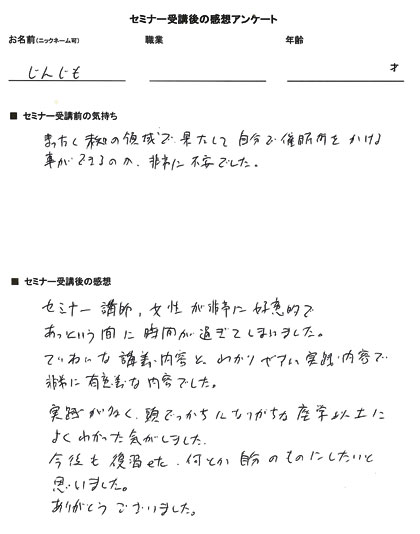 セミナー受講後の感想アンケート
お名前(ニックネーム可) 職業 年齢
じんじも 才
■ セミナー受講前の気持ち
まったく未知の領域で果たして自分で催眠術をかける
事ができるのか、非常に不安でした。
■ セミナー受講後の感想
セミナー講師、女性が非常に好意的で
あっという間に時間が過ぎてしまいました。
ていねいな講義・内容と、わかりやすい実践・内容で
非常に有意義な内容でした。
実践が多く、頭でっかちになりがちな座学以上に
よくわかった気がしました。
今後も復習etc、何とか自分のものにしたいと
思いました。
ありがとうございました。